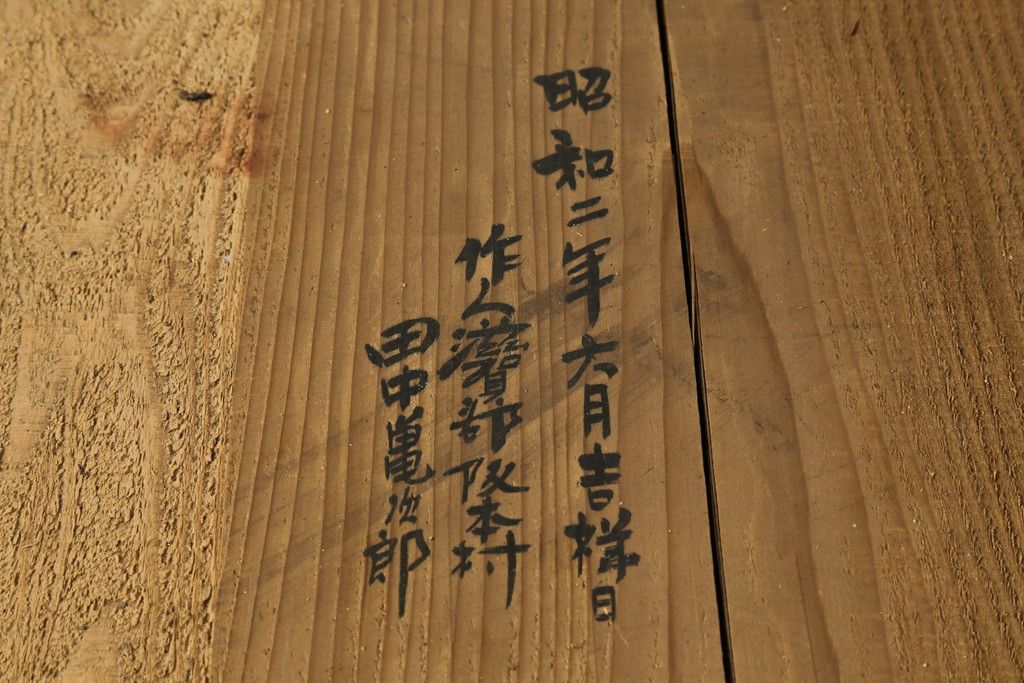 昭和二年六月吉祥日
作人滋賀郡阪本村
田中亀次郎